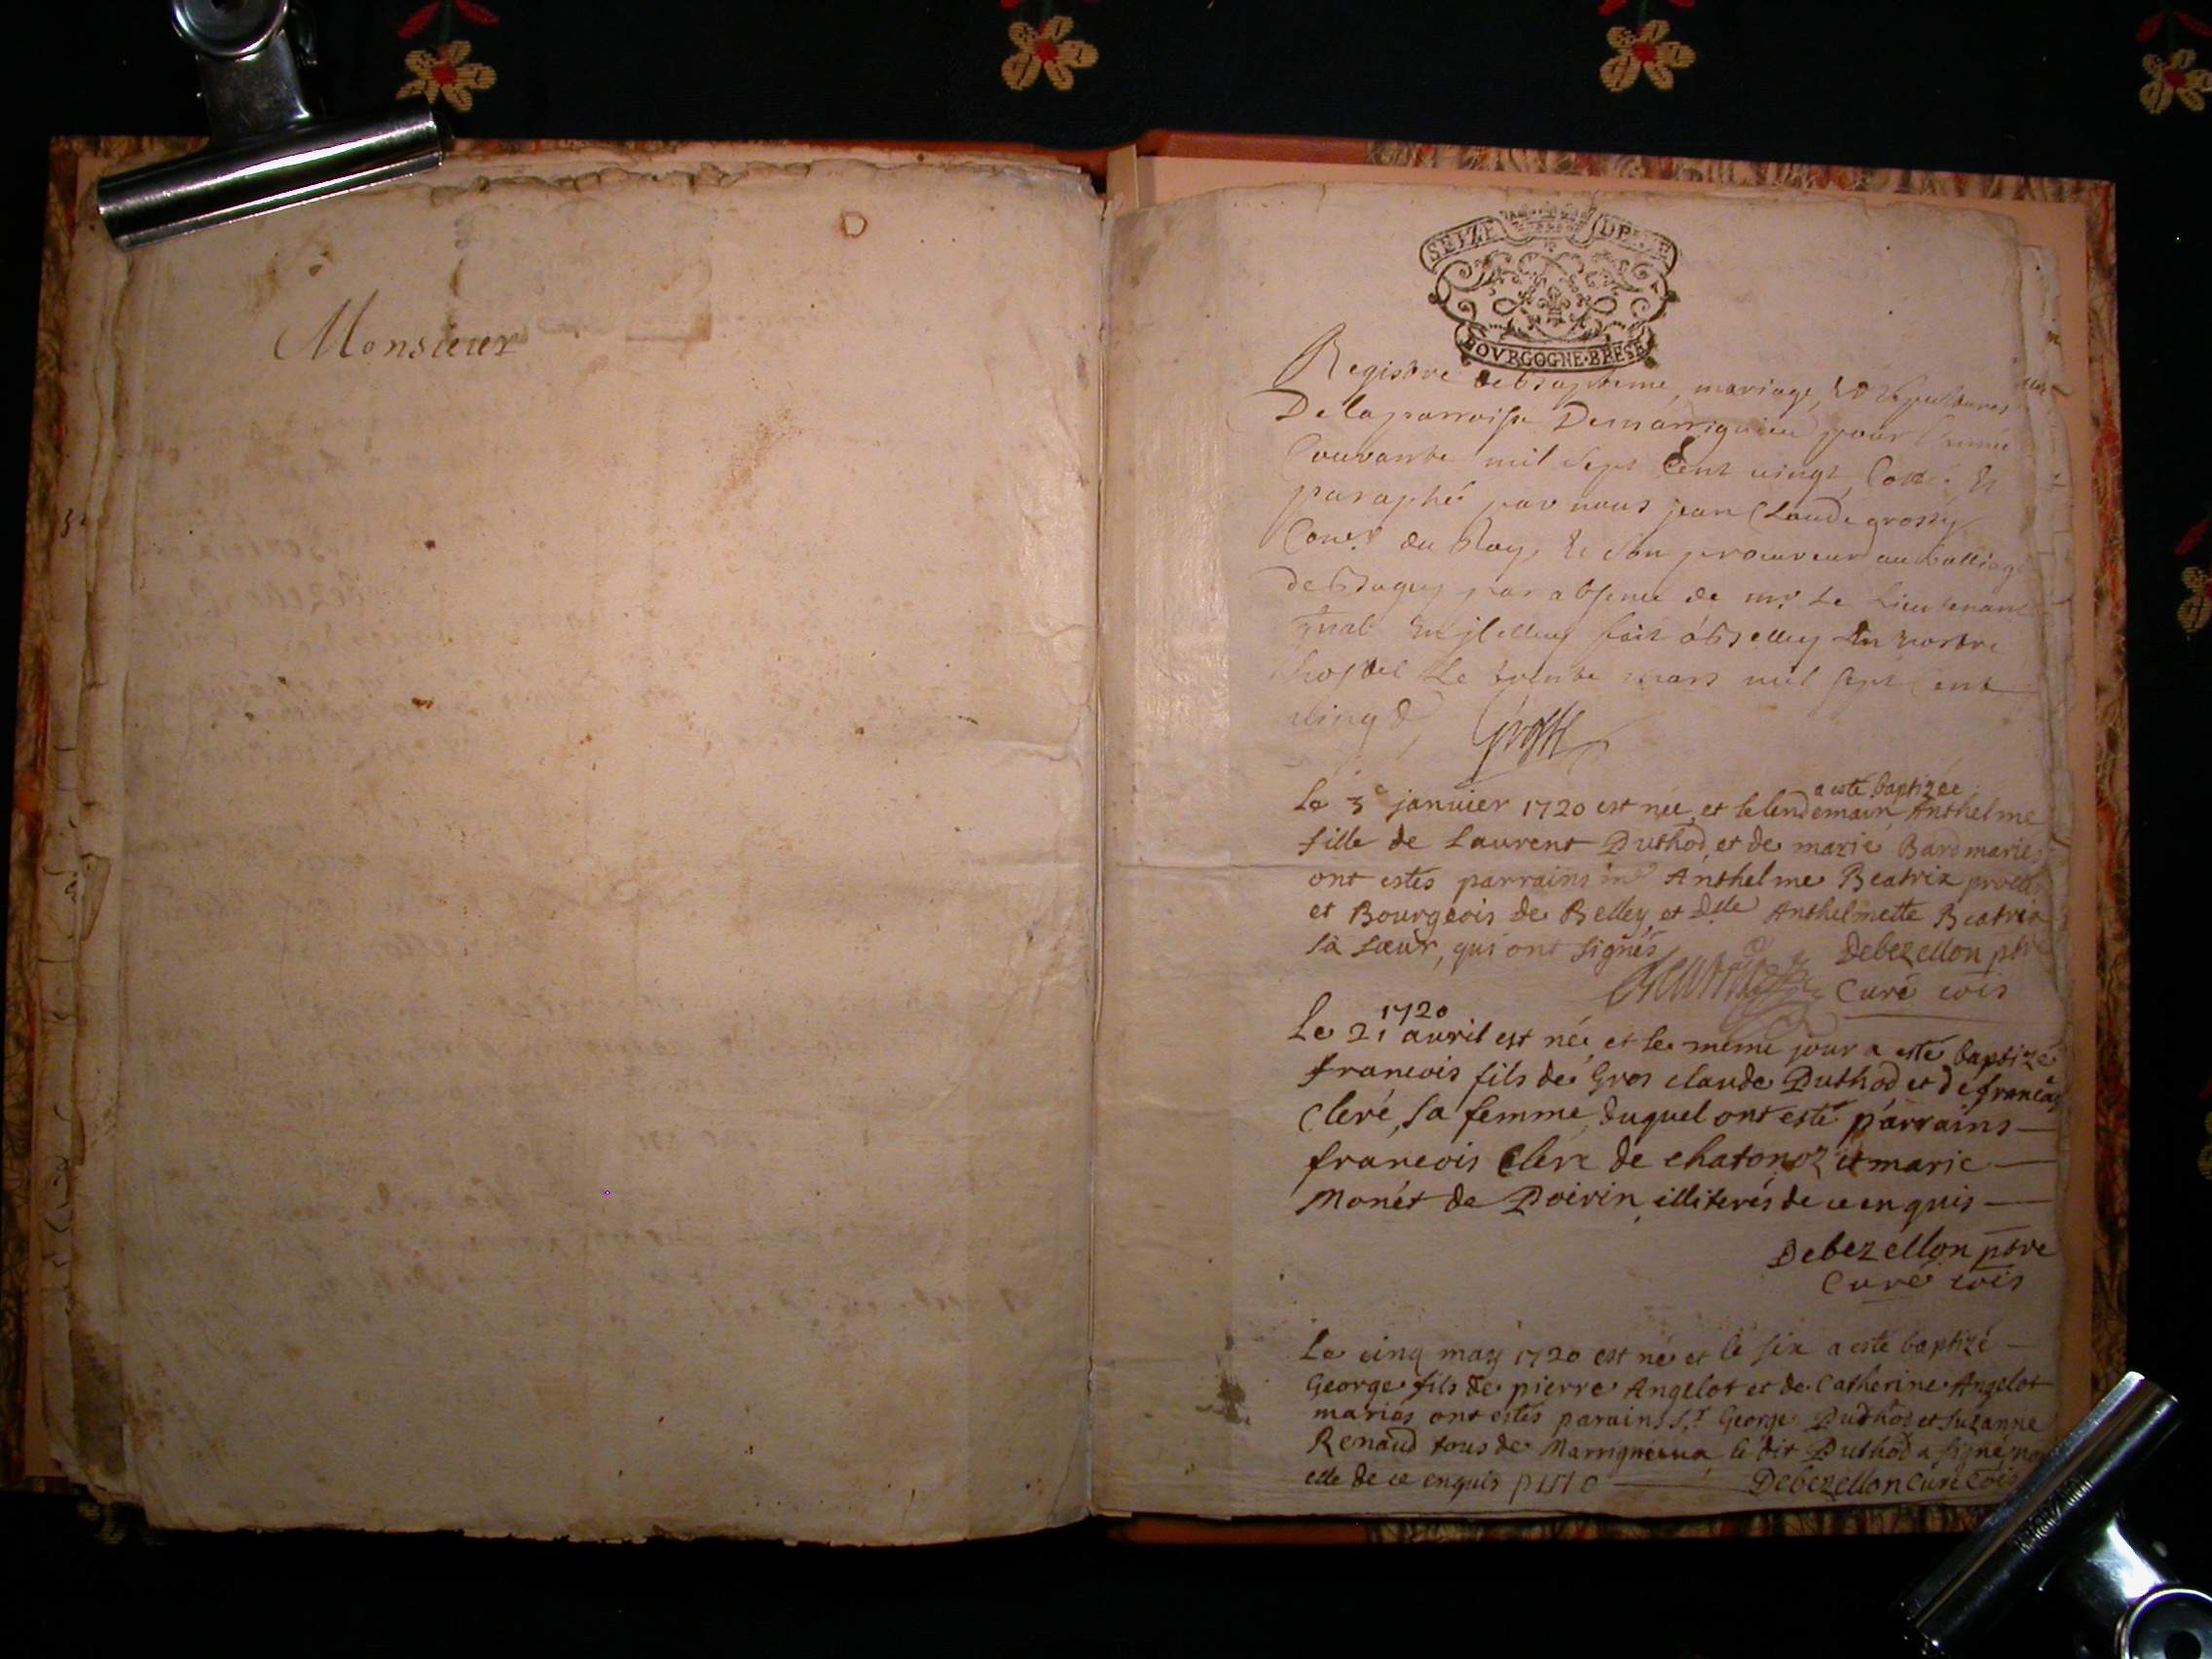 Monsieur
SEIZE DENIE
BOVRGOGNE·BRESE
Registre de Baptheme, mariage, et sepultures
De la parroisse De marrignieu pour l'année
Courante mil sept Cent vingt, Cotté et
paraphé par nous jean Claude grossy
Coner du Roy et son procureur au balliage
de Bugey par absence de mr Le Lieutenant
gnal en jcelluy fait à Belley En nostre
hostel Le trente mars mil sept Cent
vingt
Grossy
a esté baptizée
Le 3e janvier 1720 est née et le lendemain Anthelme
fille de Laurent Duthod, et de marie Bard mariés
ont estés parrains Anthelme Beatrix
et Bourgeois de Belley, et Dlle Anthelmette Beatrix
sa sœur, qui ont signés
Debezellon ptre
Curé cois
1720
Le 21 avril est né, et le meme jour a esté baptizé
francois fils de Gros claude Duthod et de
Cleré, sa femme, duquel ont esté parrains
francois Clerc de chatonoz et marie
Monet de Poirin, illiterés de ce enquis
Debezellon ptre
Curé cois
Le cinq may 1720 est né et le six a esté baptizé
George fils de pierre Angelot et de Catherine Angelot
mariés ont estés parains Sr George Duthod et suzanne
Renaud tous de Marrignieux le dit Duthod a signé, non
elle de ce enquis
Debezellon Curé Cois